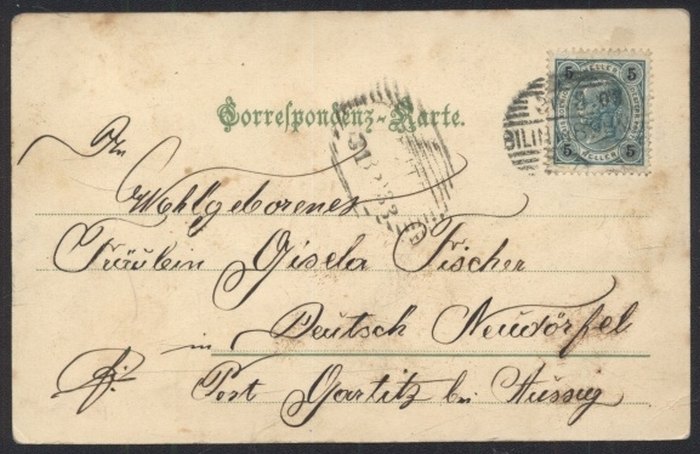 Correspondenz-Karte.
5 HELLER 5
5 HELLER 5
BILIN
An
Wohlgeborenes
Fräulein Gisela Fischer
in Deutsch Neudörfel
Post Gartitz bei Aussig